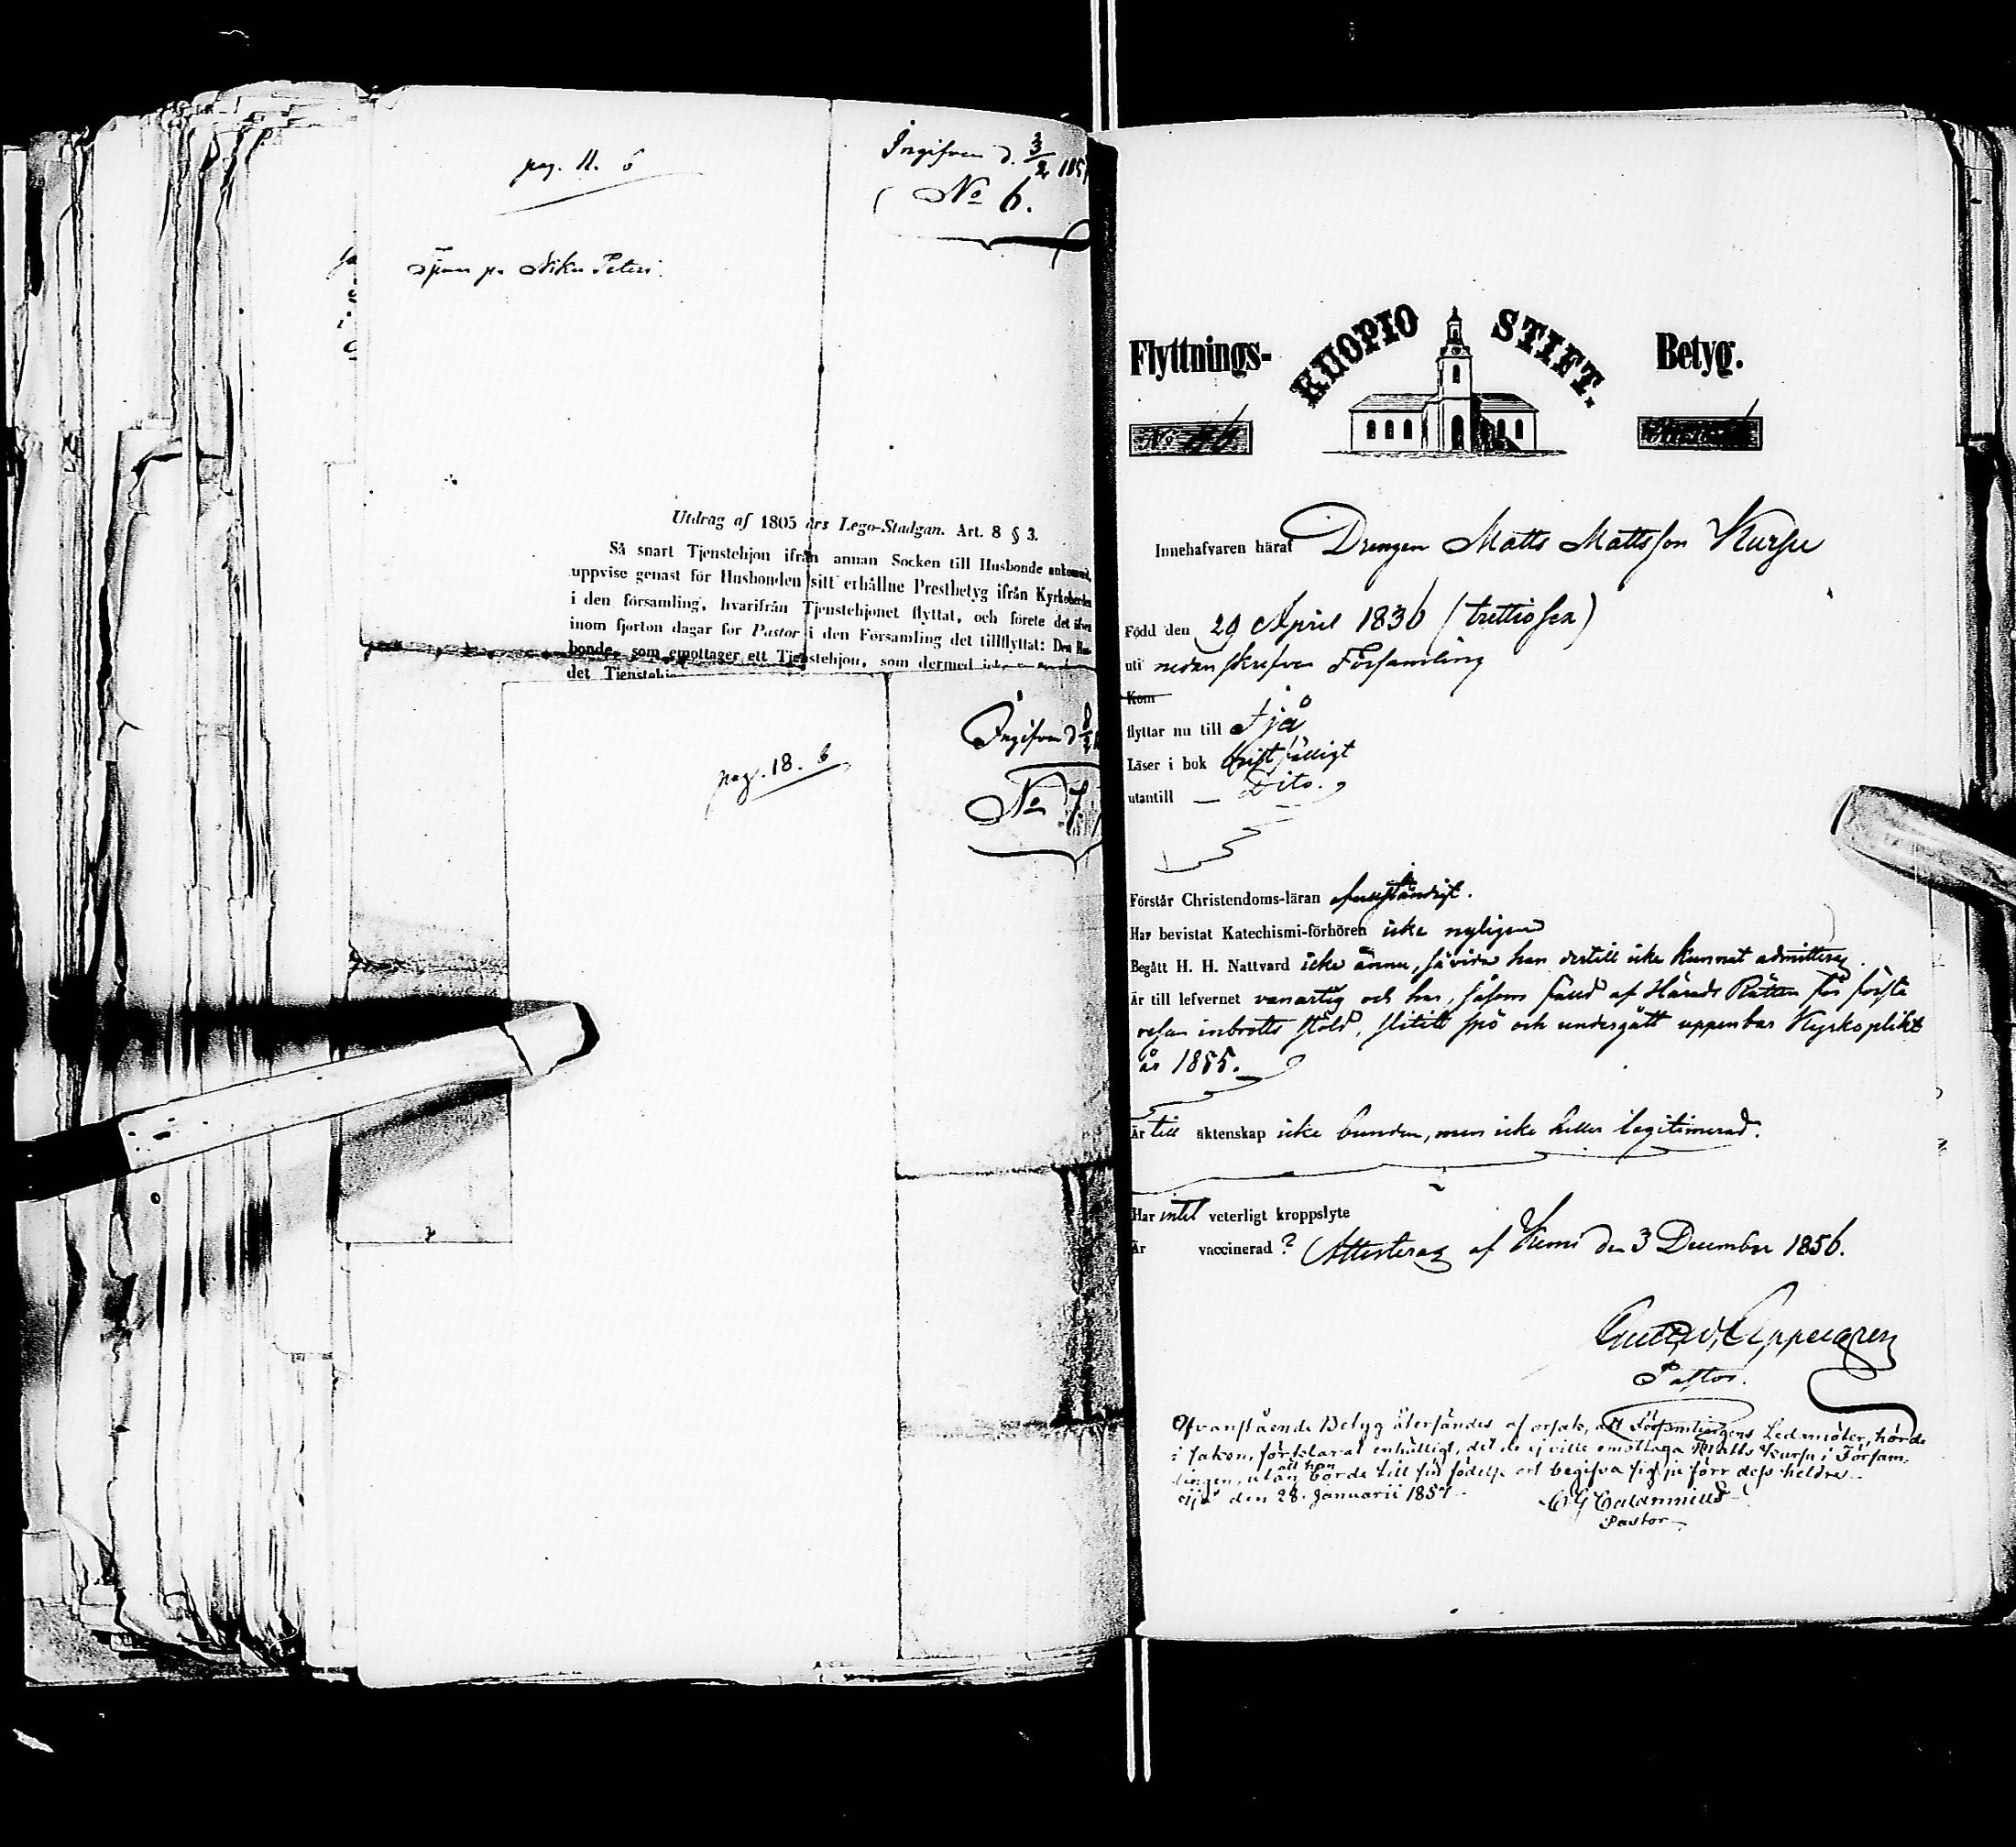 pag. 11. 6
Ingifven d. 3/2 185
No 6.
Utdrag af 1805 års Lego-Stadgan. Art. 8 § 3.
Så snart Tjenstehjon ifrån annan Socken till Husbonde ankommit,
uppvise genast för Husbonden sitt erhållne Prestbetyg ifrån Kyrkoherden
i den församling, hvarifrån Tjenstehjonet flyttat, och förete det äfven
inom fjorton dagar för Pastor i den Församling det tillflyttat: Den Hus-
bonde, som emottager ett Tjenstehjon, som dermed icke
det
pag. 18. 6
Ingifven d 8/2
No 7.
Flyttnings- KUOPIO STIFT. Betyg.
No 46.
Innehafvaren häraf Drengen Matts Mattsson Kursu
Född den 29 April 1836 (trettiosex)
uti nedanskrefven Församling
Kom
flyttar nu till Ijå
Läser i bok bristfälligt
utantill — Dito.
Förstår Christendoms-läran ofullständigt.
Har bevistat Katechismi-förhören icke nyligen
Begått H. H. Nattvard icke ännu, såvida han dertill icke kunnat admitteras.
Är till lefvernet vanartig och har, såsom fälld af Härads Rätten för första
resan inbrotts stöld, slitit spö och undergått uppenbar Kyrkoplikt
år 1855.
Är till äktenskap icke bunden, men icke heller legitimerad.
Har intet veterligt kroppslyte
Är vaccinerad? Attesteras af Kemi den 3 December 1856.
Gustav Appelgren
Pastor.
Ofvanstående Betyg återsändes af orsak, att Församlingens Ledamöter, hörde
i saken, förklarat enhälligt, det de ej ville emottaga Matts Kursu i Försam-
lingen, utan att han borde till sin födelse ort begifva sig ju förr dess heldre.
Ijå den 28. Januarii 1857.
C G Calamnius
Pastor